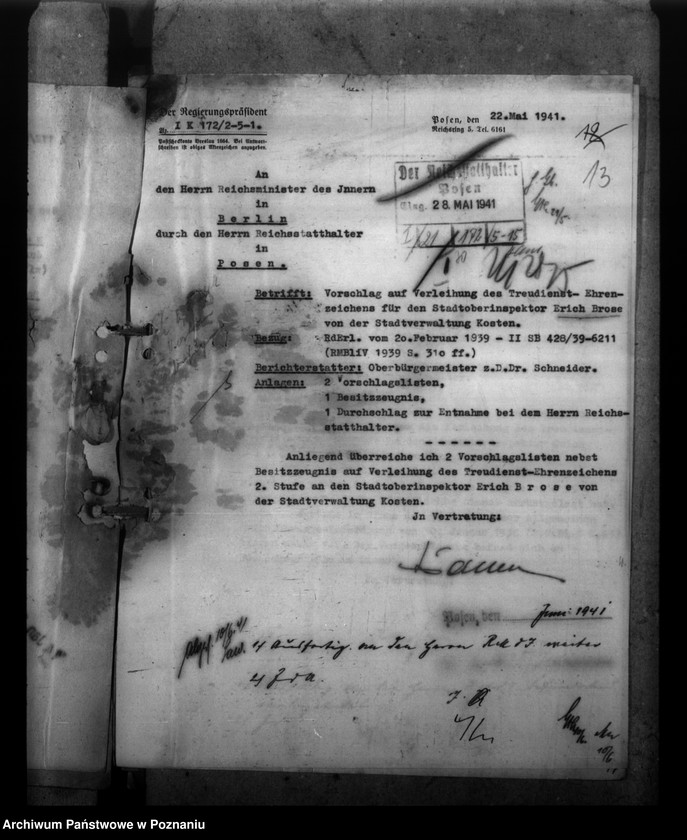 Der Regierungspräsident
Nr. I K 172/2-5-1.
Posen, den 22.Mai 1941.
Reichsring 5. Tel. 6161
18
13
An
den Herrn Reichsminister des Jnnern
in
Berlin
durch den Herrn Reichsstatthalter
in
Posen.
Der Reichsstatthalter
Posen
Eing. 28. MAI 1941
Betrifft: Vorschlag auf Verleihung des Treudienst- Ehren-
zeichens für den Stadtoberinspektor Erich Brose
von der Stadtverwaltung Kosten.
Bezug: RdErl. vom 2o.Februar 1939 - II SB 428/39-6211
(RMBliV 1939 S. 31o ff.)
Berichterstatter: Oberbürgermeister z.D.Dr. Schneider.
Anlagen: 2 Vorschlagslisten,
1 Besitzzeugnis,
1 Durchschlag zur Entnahme bei dem Herrn Reichs-
statthalter.
- - - - - -
Anliegend überreiche ich 2 Vorschlagslisten nebst
Besitzzeugnis auf Verleihung des Treudienst-Ehrenzeichens
2. Stufe an den Stadtoberinspektor Erich B r o s e von
der Stadtverwaltung Kosten.
Jn Vertretung:
Posen, den Juni 1941
4 Ausfertig. an den Herrn RMdJ. weiter
Archiwum Państwowe w Poznaniu